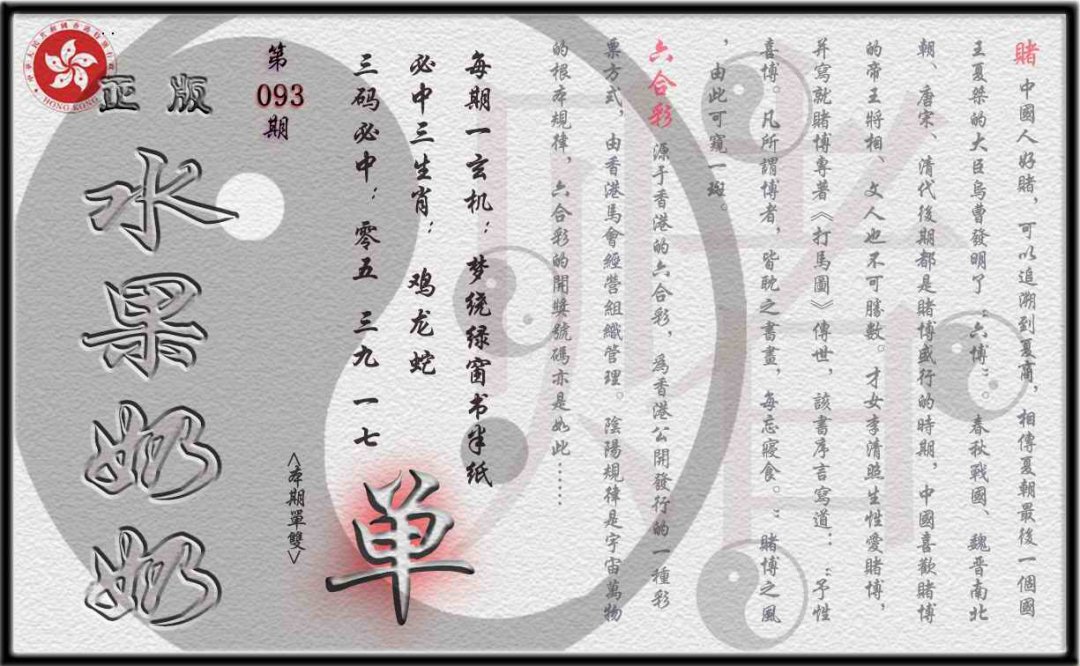 賭 中國人好賭，可以追溯到夏商，相傳夏朝最後一個國
王夏桀的大臣烏曹發明了“六博”。春秋戰國、魏晉南北
朝、唐宋、清代後期都是賭博盛行的時期，中國喜歡賭博
的帝王將相、文人也不可勝數。才女李清照生性愛賭博，
并寫就賭博專著《打馬圖》傳世，該書序言寫道：“予性
喜博。凡所謂博者，皆耽之書畫，每忘寢食。”賭博之風
，由此可窺一斑。
六合彩 源于香港的六合彩，爲香港公開發行的一種彩
票方式，由香港馬會經營組織管理。陰陽規律是宇宙萬物
的根本規律，六合彩的開獎號碼亦是如此……
每期一玄机：梦绕绿窗书半纸
必中三生肖：鸡龙蛇
三码必中：零五 三九 一七
单
<本期單雙>
第093期
正版
水果奶奶
HONG KONG